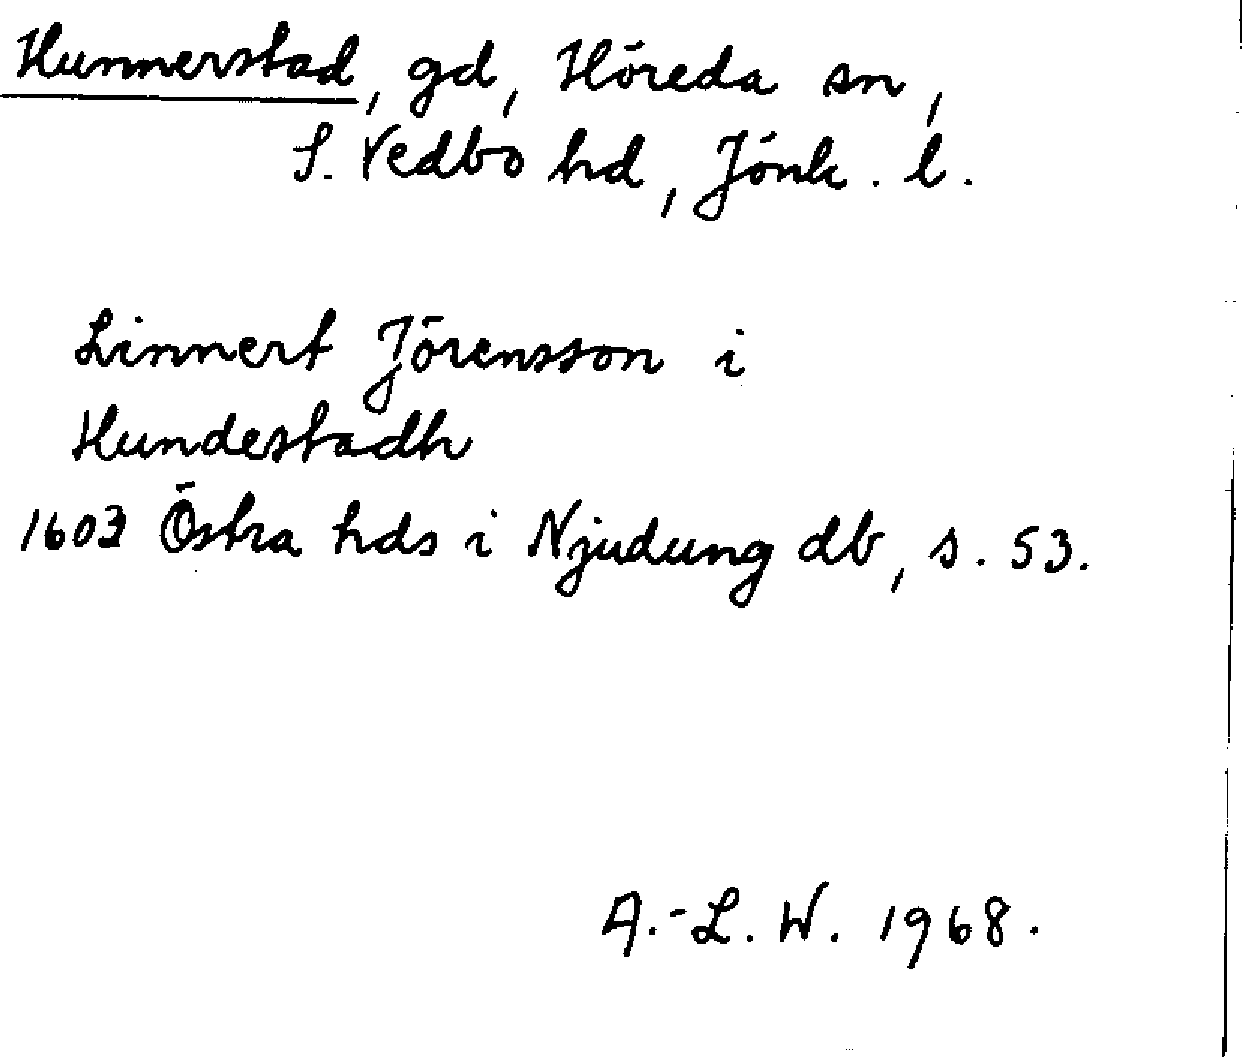 Hunnerstad, gd, Höreda sn,
S. Vedbo hd, Jönk. l.
Linnert Jörensson i
Hundestadh
1603 Östra hds i Njudung db, s. 53.
A.-L. W. 1968.